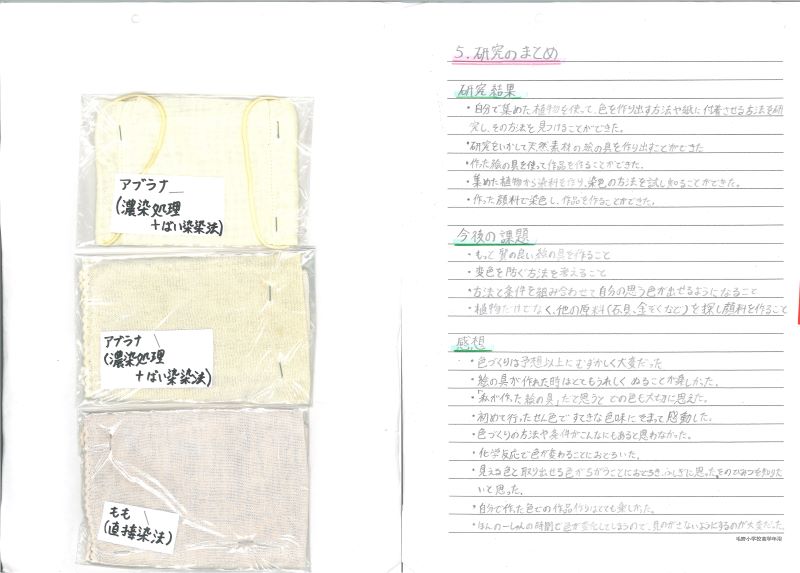 アブラナ
(濃染処理
+ばい染染法)
アブラナ
(濃染処理
+ばい染染法)
もも
(直接染法)
5. 研究のまとめ
研究結果
・自分で集めた植物を使って、色を作り出す方法や紙に付着させる方法を研
究し、その方法を見つけることができた。
・研究をいかして天然素材の絵の具を作り出すことができた
・作った絵の具を使って作品を作ることができた。
・集めた植物から染料を作り、染色の方法を試し知ることができた。
・作った顔料で染色し、作品を作ることができた。
今後の課題
・もっと質の良い絵の具を作ること
・変色を防ぐ方法を考えること
・方法と条件を組み合わせて自分の思う色が出せるようになること
・植物だけでなく、他の原料(石、貝、金ぞくなど)を探し顔料を作ること
感想
・色づくりは予想以上にむずかしく大変だった
・絵の具が作れた時はとてもうれしく ぬることが楽しかった。
・「私が作った絵の具」だと思うと どの色も大切に思えた。
・初めて行ったせん色で すてきな色味にそまって感動した。
・色づくりの方法や条件がこんなにもあると思わなかった。
・化学反応で色が変わることにおどろいた。
・見える色と取り出せる色がちがうことにおどろき、ふしぎに思った。そのひみつを知りた
いと思った。
・自分で作った色での作品作りはとても楽しかった。
・ほんの一しゅんの時間で色が変化してしまうので、見のがさないようにするのが大変だった。
毛野小学校高学年用